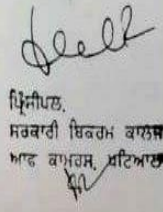 ਪ੍ਰਿੰਸੀਪਲ,
ਸਰਕਾਰੀ ਬਿਕਰਮ ਕਾਲਜ
ਆਫ ਕਾਮਰਸ, ਪਟਿਆਲਾ